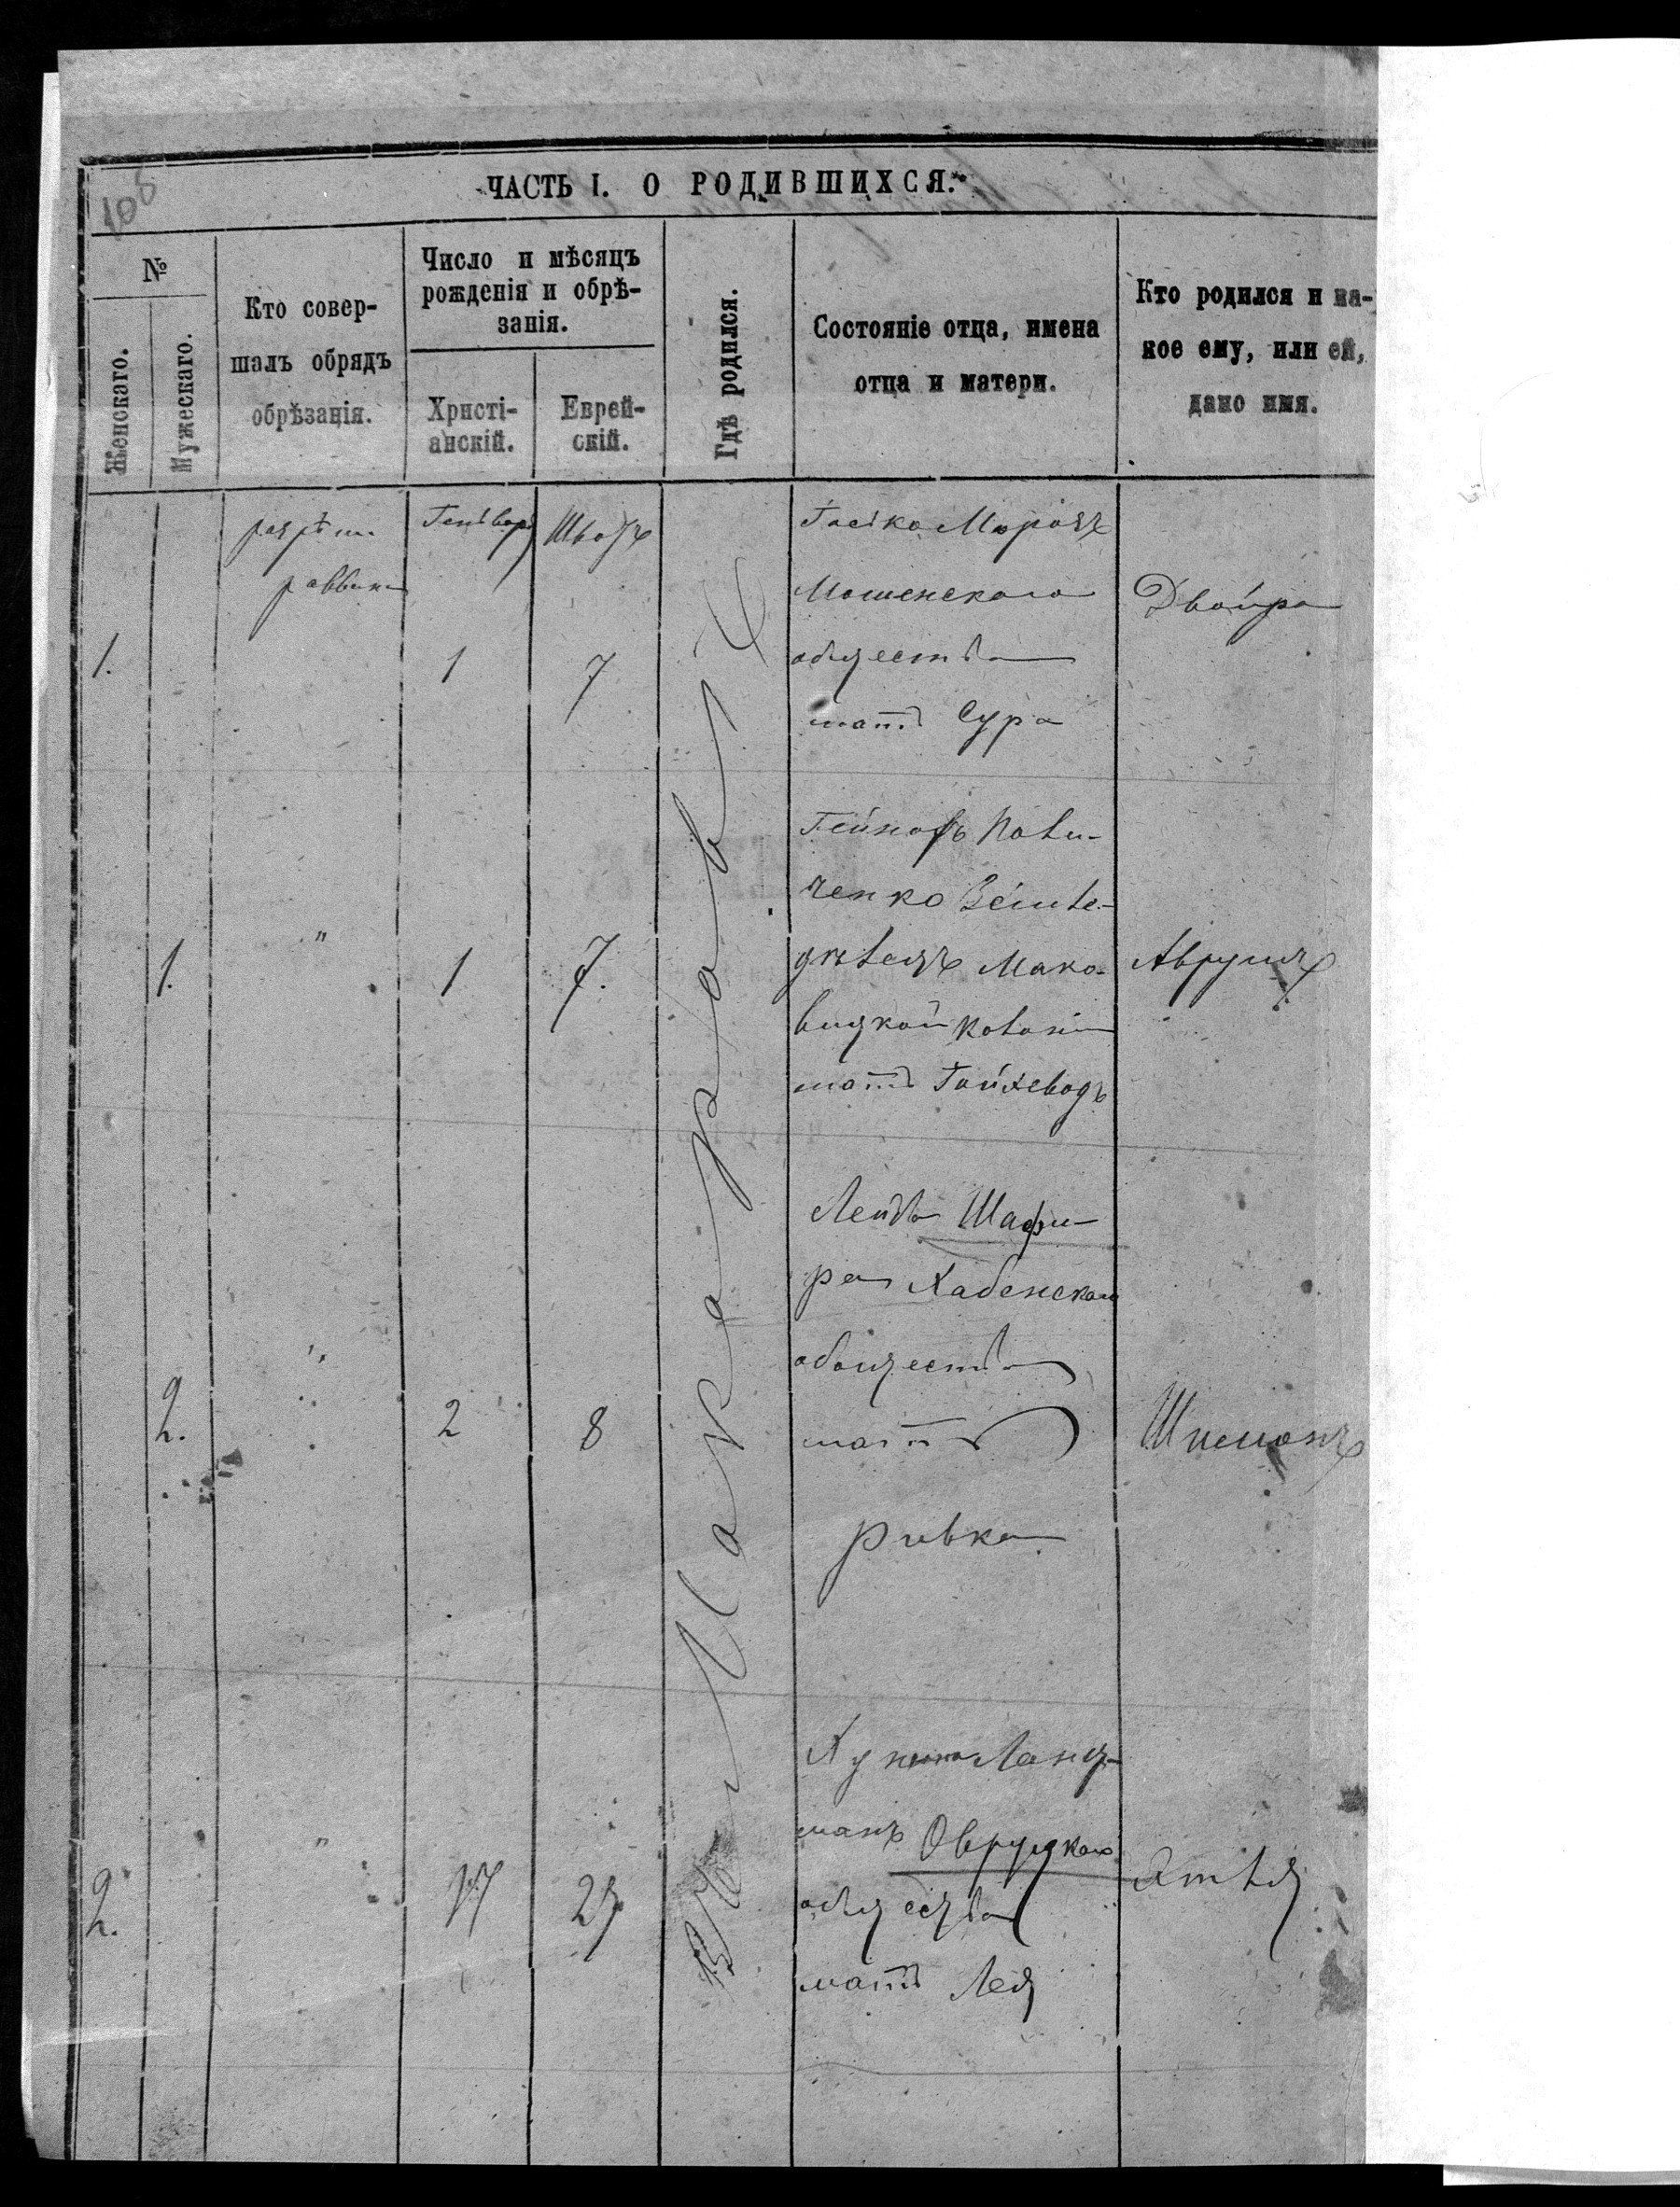 108
ЧАСТЬ I. О РОДИВШИХСЯ.
№
Женскаго.
Мужескаго.
Кто совер-
шалъ обрядъ
обрѣзанія.
Число и мѣсяцъ
рожденія и обрѣ-
занія.
Христі-
анскій.
Еврей-
скій.
Гдѣ родился.
Состояніе отца, имена
отца и матери.
Кто родился и ка-
кое ему, или ей,
дано имя.
1.
раввинъ
Генваря
1
Шватъ
7
Въ Макарове
Мошенскаго
общества
мать Сура
Двойра
1.
"
1
7.
Пови-
ченко Земле-
дѣлецъ Мако-
вицкой Колоніи
мать
Аврумъ
2.
"
2
8
Лейба Шафи-
ра Хабенскаго
общества
мать
Ривка
Шлемонъ
2.
"
17
23
Ланц-
манъ Овруцкаго
общества
мать Лея
Этля